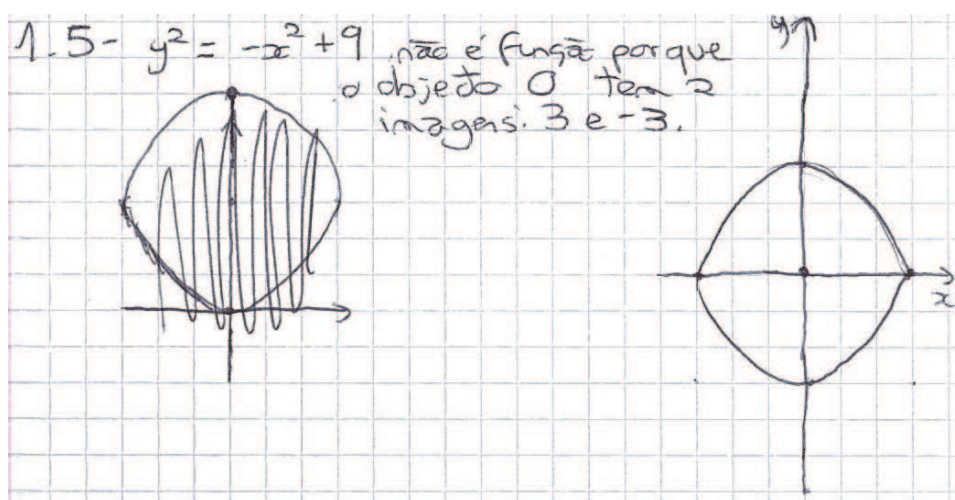 1.5- y² = -x² + 9 não é função porque
o objeto 0 tem 2
imagens. 3 e -3.
y
x